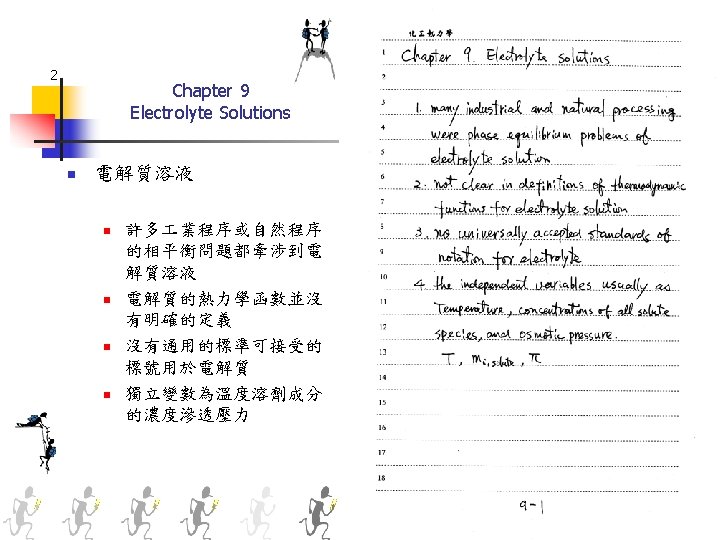 2
Chapter 9
Electrolyte Solutions
電解質溶液
許多工業程序或自然程序
的相平衡問題都牽涉到電
解質溶液
電解質的熱力學函數並沒
有明確的定義
沒有通用的標準可接受的
標號用於電解質
獨立變數為溫度溶劑成分
的濃度滲透壓力
化工熱力學
1 Chapter 9 Electrolyte solutions
2
3 1. many industrial and natural processing
4 were phase equilibrium problems of
5 electrolyte solution
6 2. not clear in definitions of thermodynamic
7 functions for electrolyte solution
8 3. no universally accepted standards of
9 notation for electrolyte
10 4 the independent variables usually as
11 Temperature, concentrations of all solute
12 species, and osmotic pressure.
13 T, mi,solute, π
14
15
16
17
18
9-1